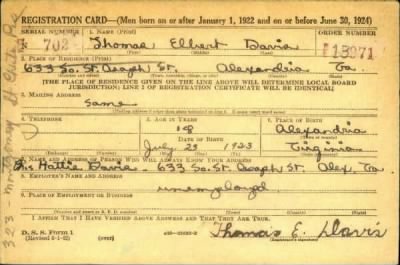 REGISTRATION CARD—(Men born on or after January 1, 1922 and on or before June 30, 1924)
SERIAL NUMBER 1. NAME (Print) ORDER NUMBER
702 Thomas Elbert Davis 13071
2. PLACE OF RESIDENCE (Print)
633 So. St. Asaph St. Alexandria Va.
[THE PLACE OF RESIDENCE GIVEN ON THE LINE ABOVE WILL DETERMINE LOCAL BOARD
JURISDICTION; LINE 2 OF REGISTRATION CERTIFICATE WILL BE IDENTICAL]
3. MAILING ADDRESS
Same
4. TELEPHONE 5. AGE IN YEARS 6. PLACE OF BIRTH
18 Alexandria
DATE OF BIRTH
July 23 1923 Virginia
7. NAME AND ADDRESS OF PERSON WHO WILL ALWAYS KNOW YOUR ADDRESS
Hattie Davis - 633 So. St. Asaph St. Alex, Va.
8. EMPLOYER'S NAME AND ADDRESS
unemployed
9. PLACE OF EMPLOYMENT OR BUSINESS
I AFFIRM THAT I HAVE VERIFIED ABOVE ANSWERS AND THAT THEY ARE TRUE.
D. S. S. Form 1
Thomas E. Davis
(Registrant's signature)